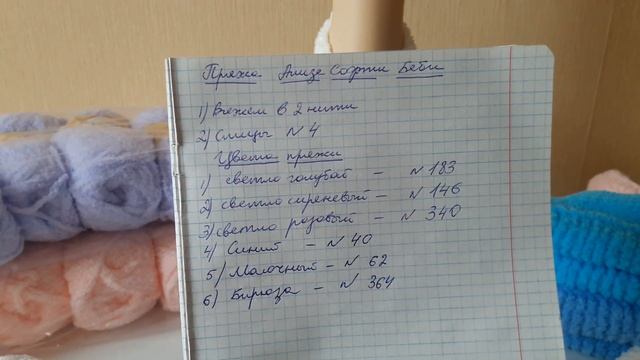 Пряжа Ализе Софти Беби
1) Вяжем в 2 нити
2) Спицы N 4
Цвета пряжи
1) светло голубой – N 183
2) светло сиреневый – N 146
3) светло розовый – N 340
4) Синий – N 40
5) Молочный – N 62
6) Бирюза – N 364